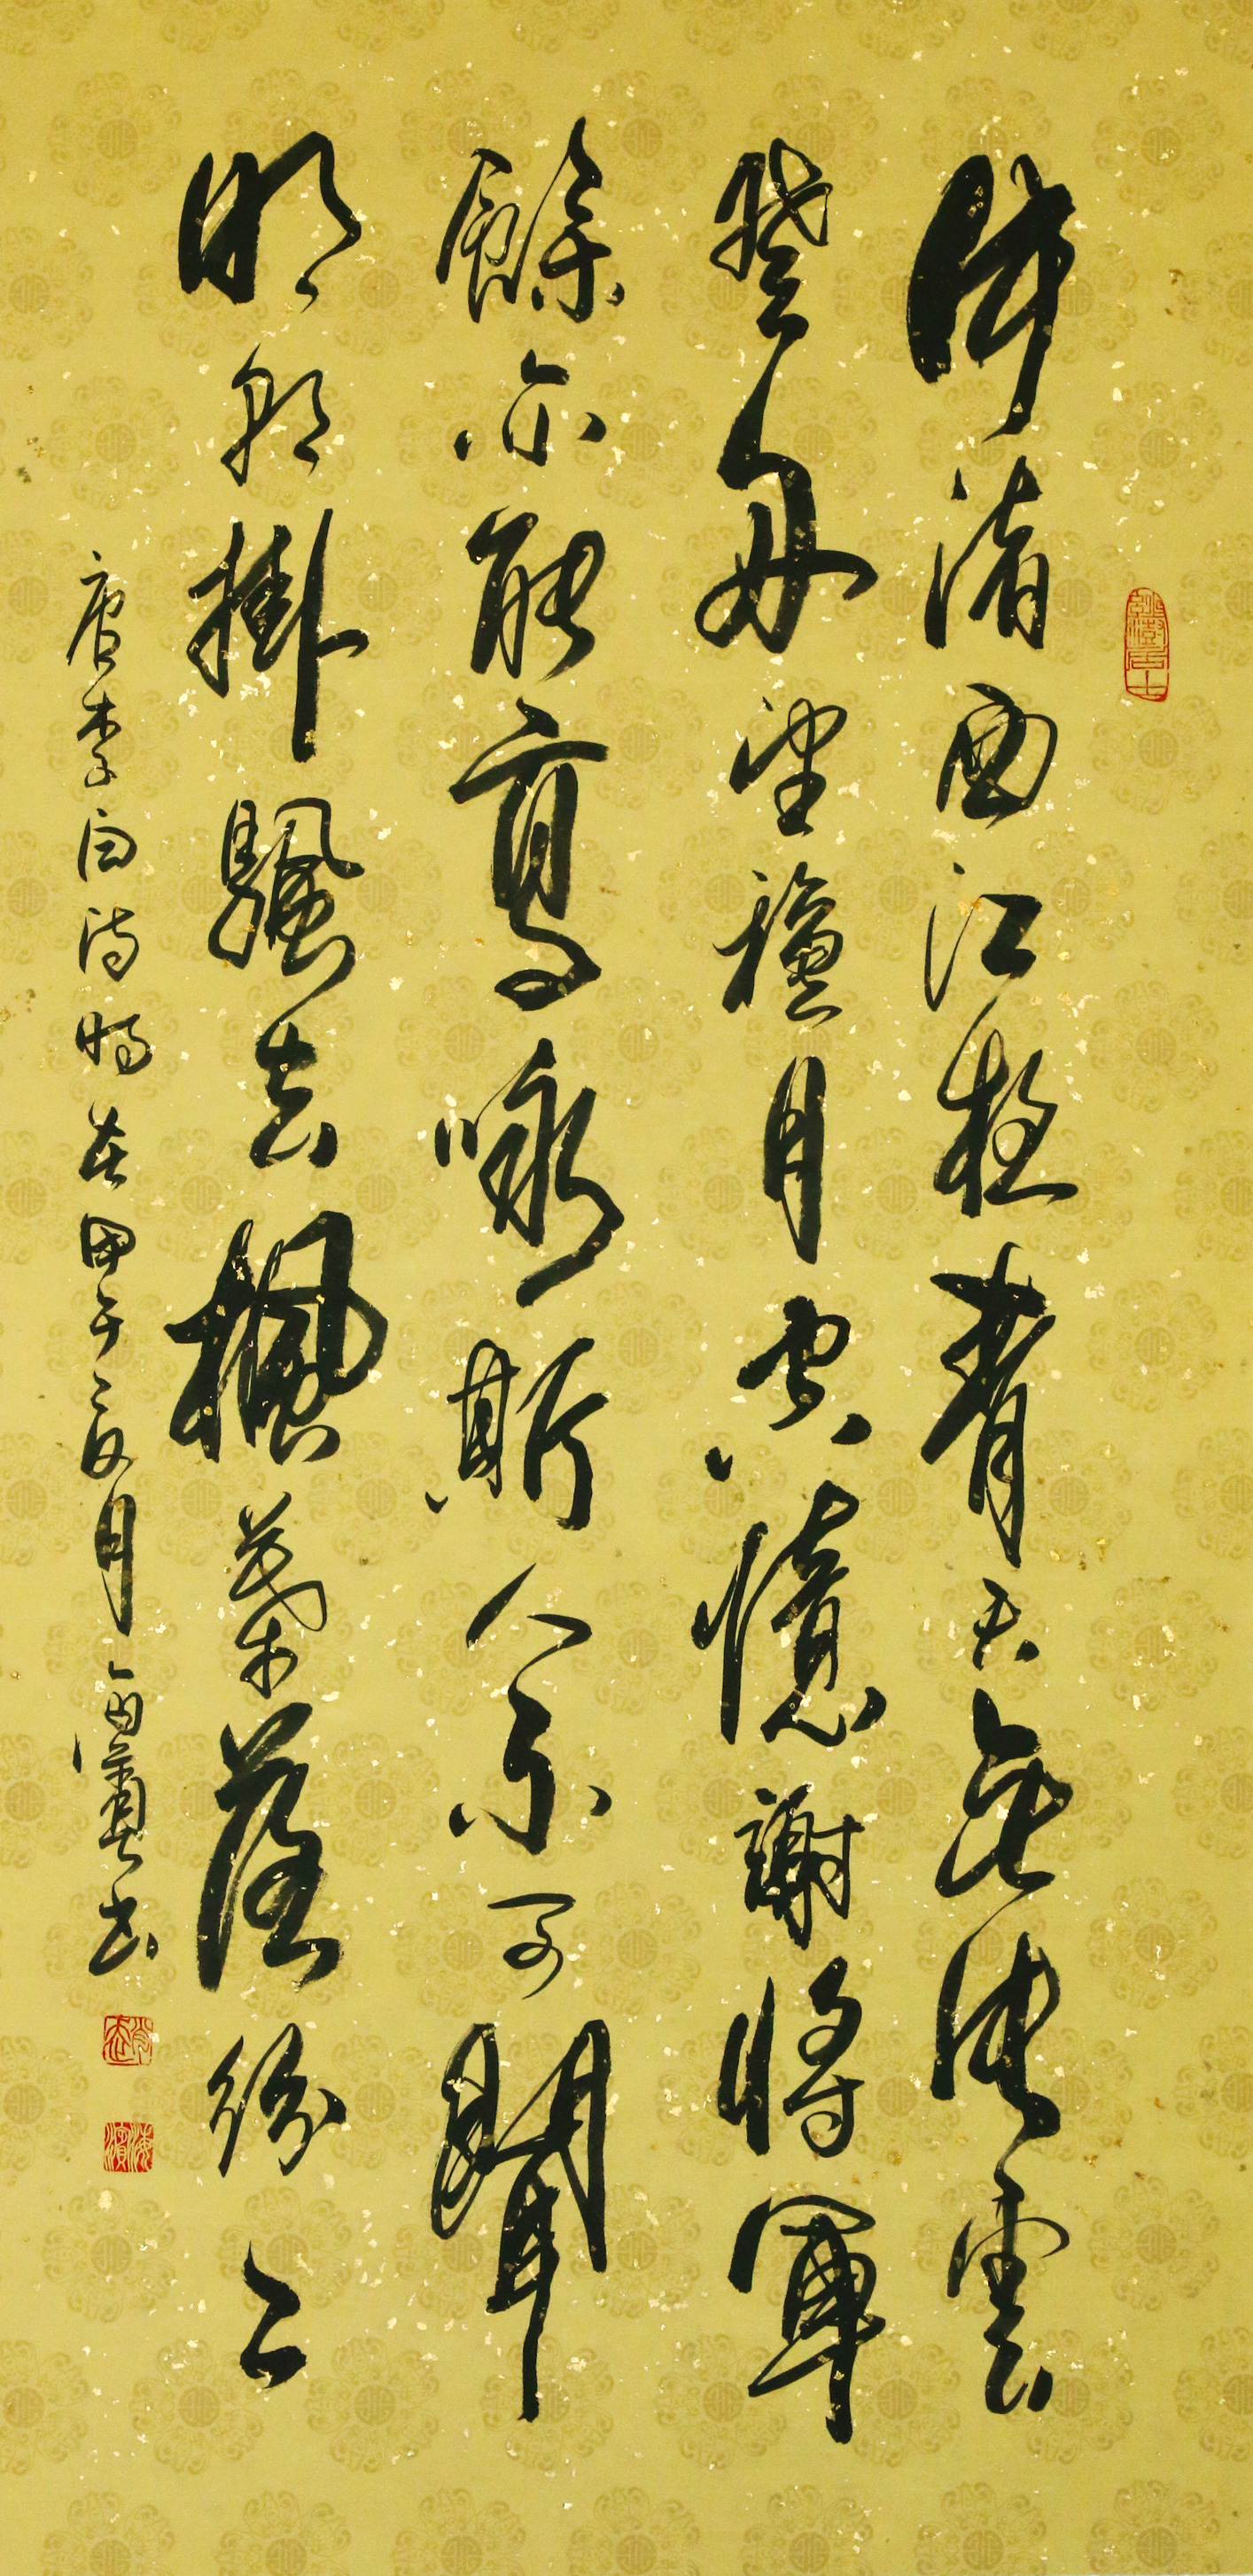 渚西江夜青天無片雲
登舟望穐月空憶謝將軍
餘亦能高咏斯人不可聞
明朝掛颿去楓葉落紛〻
唐李白詩時在甲午夏月書
海濱